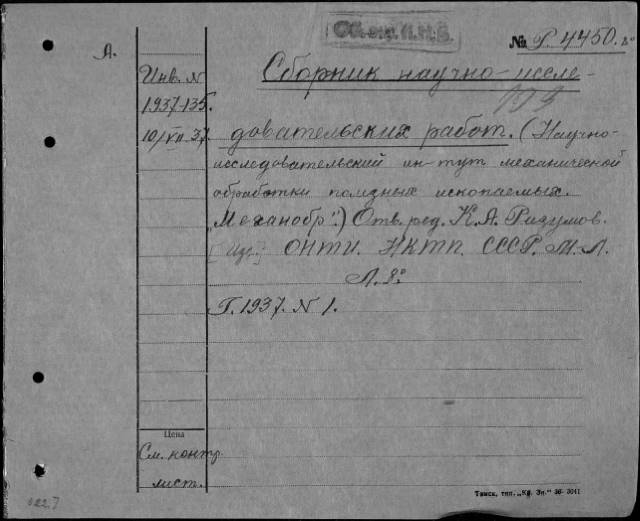 № Р. 4450. 8°
А.
Инв. N
1937-135.
10/VII-37.
Сборник научно-иссле-
довательских работ. (Научно-
исследовательский ин-тут механической
обработки полезных ископаемых.
"Механобр".) Отв. ред. К. А. Разумов.
[Изд.] ОНТИ. НКТП. СССР. М.-Л.
Л. 8°
Г. 1937. N 1.
Цена
См. контр.
лист.
Томск, тип. „Кр. Зн." 36-3041